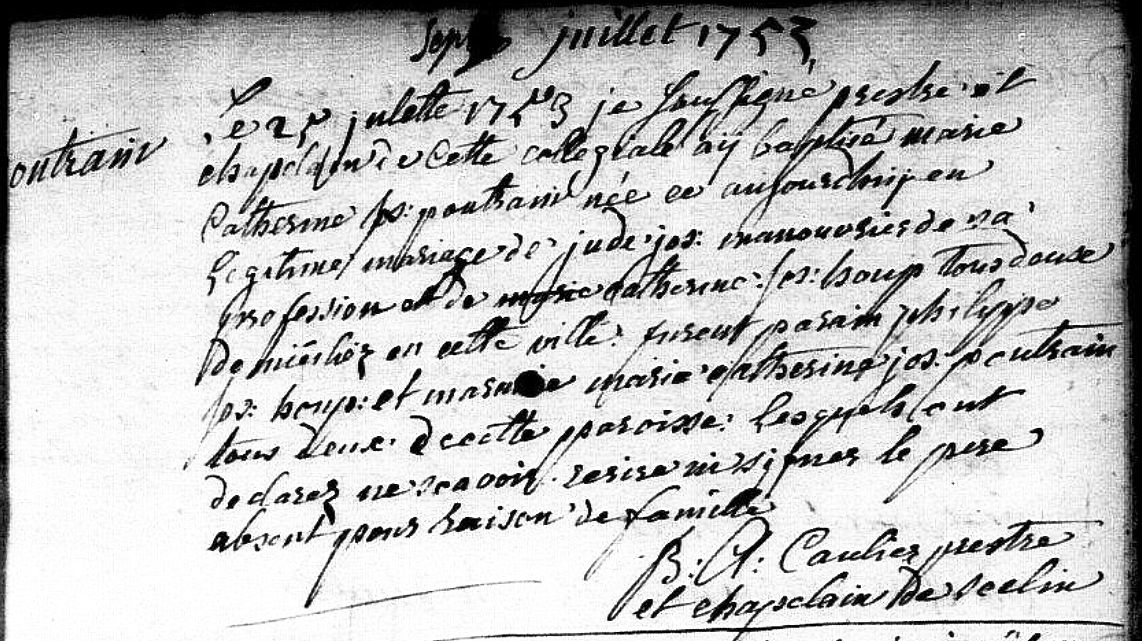 juillet 1753
Le 25 julette 1753 je soussigné prestre et
outrain
chapelain de cette collegiale aÿ baptisé marie
Catherine jos: poutrain née ce aujourdhuy en
Legitime mariage de jude jos: manouvrier de sa
profession et de marie catherine: jos: houp tous deux
demiciliez en cette ville: furent parain philippe
jos: houp: et maraine marie catherine jos: poutrain
tous deux decette paroisse: lesquels ont
declarez ne scavoir escire ni signer le pere
absent pour raison de famille
B: A: Caulier prestre
et chapelain De seclin